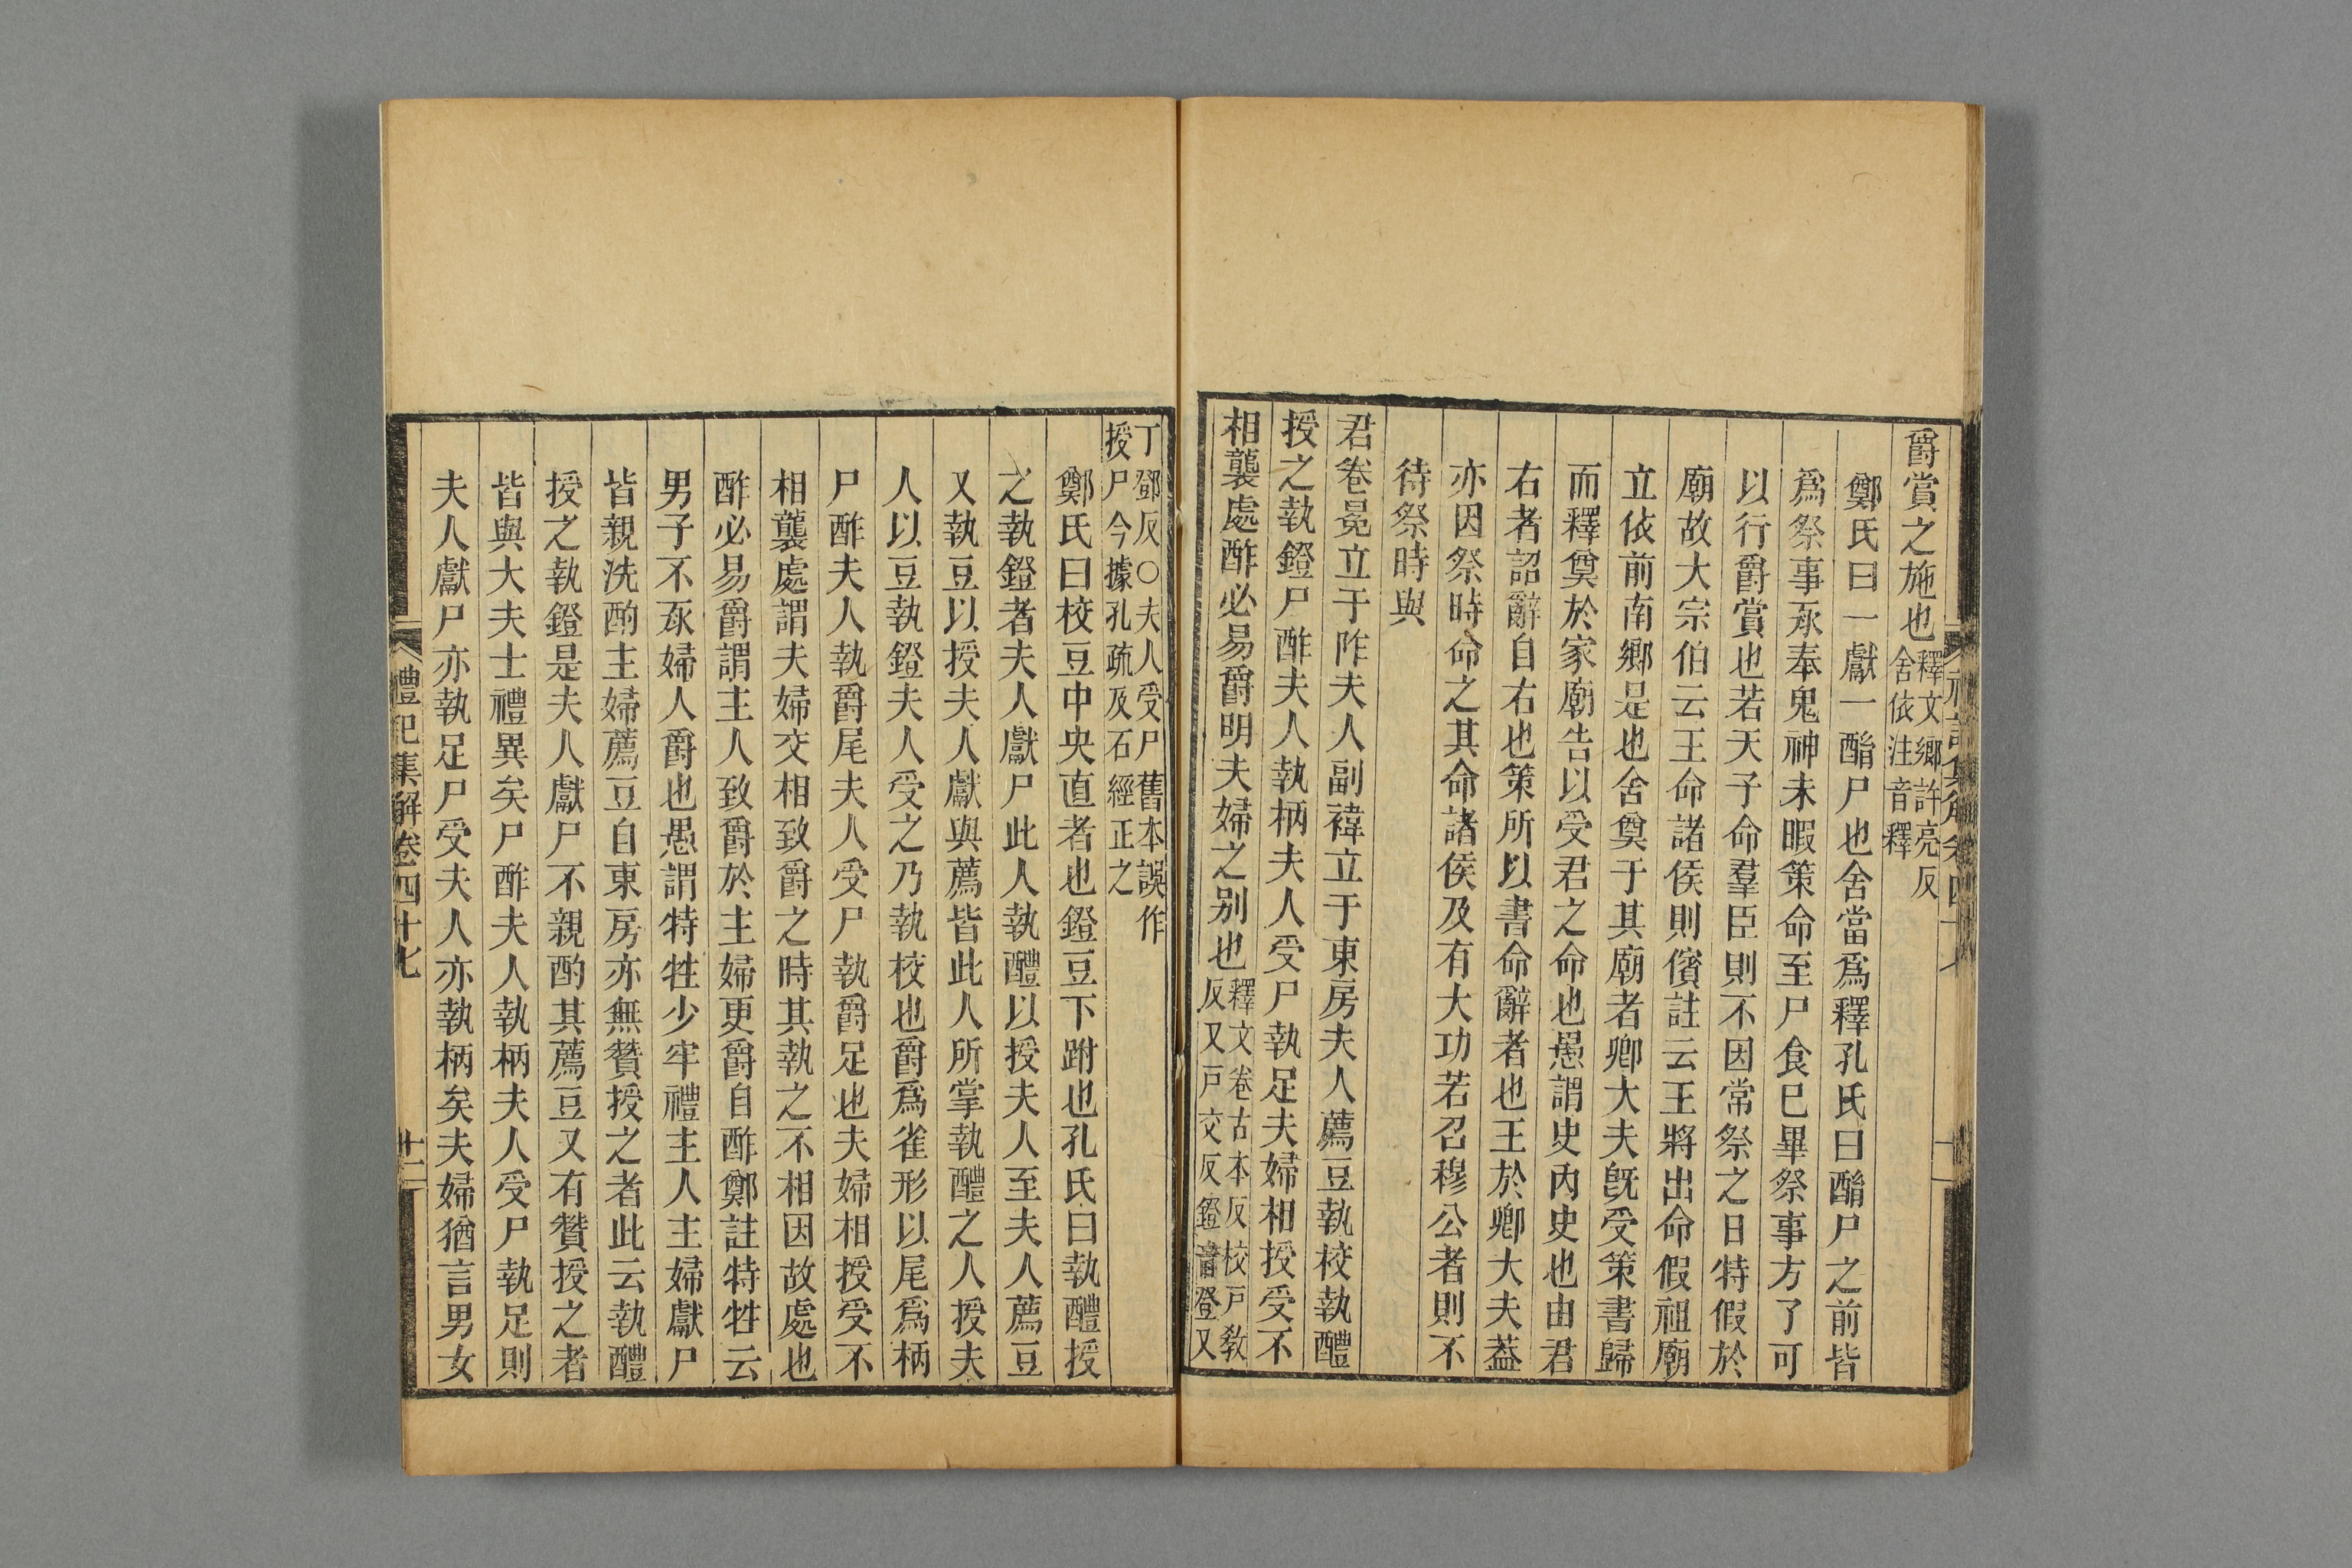 爵賞之施也釋文鄉許亮反
舍依注音釋
鄭氏曰一獻一酳尸也舍當爲釋孔氏曰酳尸之前皆
爲祭事承奉鬼神未暇策命至尸食已畢祭事方了可
以行爵賞也若天子命羣臣則不因常祭之日特假於
廟故大宗伯云王命諸侯則儐註云王將出命假祖廟
立依前南鄉是也舍奠于其廟者卿大夫旣受策書歸
而釋奠於家廟告以受君之命也愚謂史內史也由君
右者詔辭自右也策所以書命辭者也王於卿大夫葢
亦因祭時命之其命諸侯及有大功若召穆公者則不
待祭時與
君卷冕立于阼夫人副褘立于東房夫人薦豆執校執醴
授之執鐙尸酢夫人執柄夫人受尸執足夫婦相授受不
相襲處酢必易爵明夫婦之别也釋文卷古本反校戸敎
反又戸交反鐙音登又
丁鄧反○夫人受尸舊本誤作
授尸今據孔疏及石經正之
鄭氏曰校豆中央直者也鐙豆下跗也孔氏曰執醴授
之執鐙者夫人獻尸此人執醴以授夫人至夫人薦豆
又執豆以授夫人獻與薦皆此人所掌執醴之人授夫
人以豆執鐙夫人受之乃執校也爵爲雀形以尾爲柄
尸酢夫人執爵尾夫人受尸執爵足也夫婦相授受不
相襲處謂夫婦交相致爵之時其執之不相因故處也
酢必易爵謂主人致爵於主婦更爵自酢鄭註特牲云
男子不承婦人爵也愚謂特牲少牢禮主人主婦獻尸
皆親洗酌主婦薦豆自東房亦無贊授之者此云執醴
授之執鐙是夫人獻尸不親酌其薦豆又有贊授之者
皆與大夫士禮異矣尸酢夫人執柄夫人受尸執足則
夫人獻尸亦執足尸受夫人亦執柄矣夫婦猶言男女
禮記集解卷四十七
十二